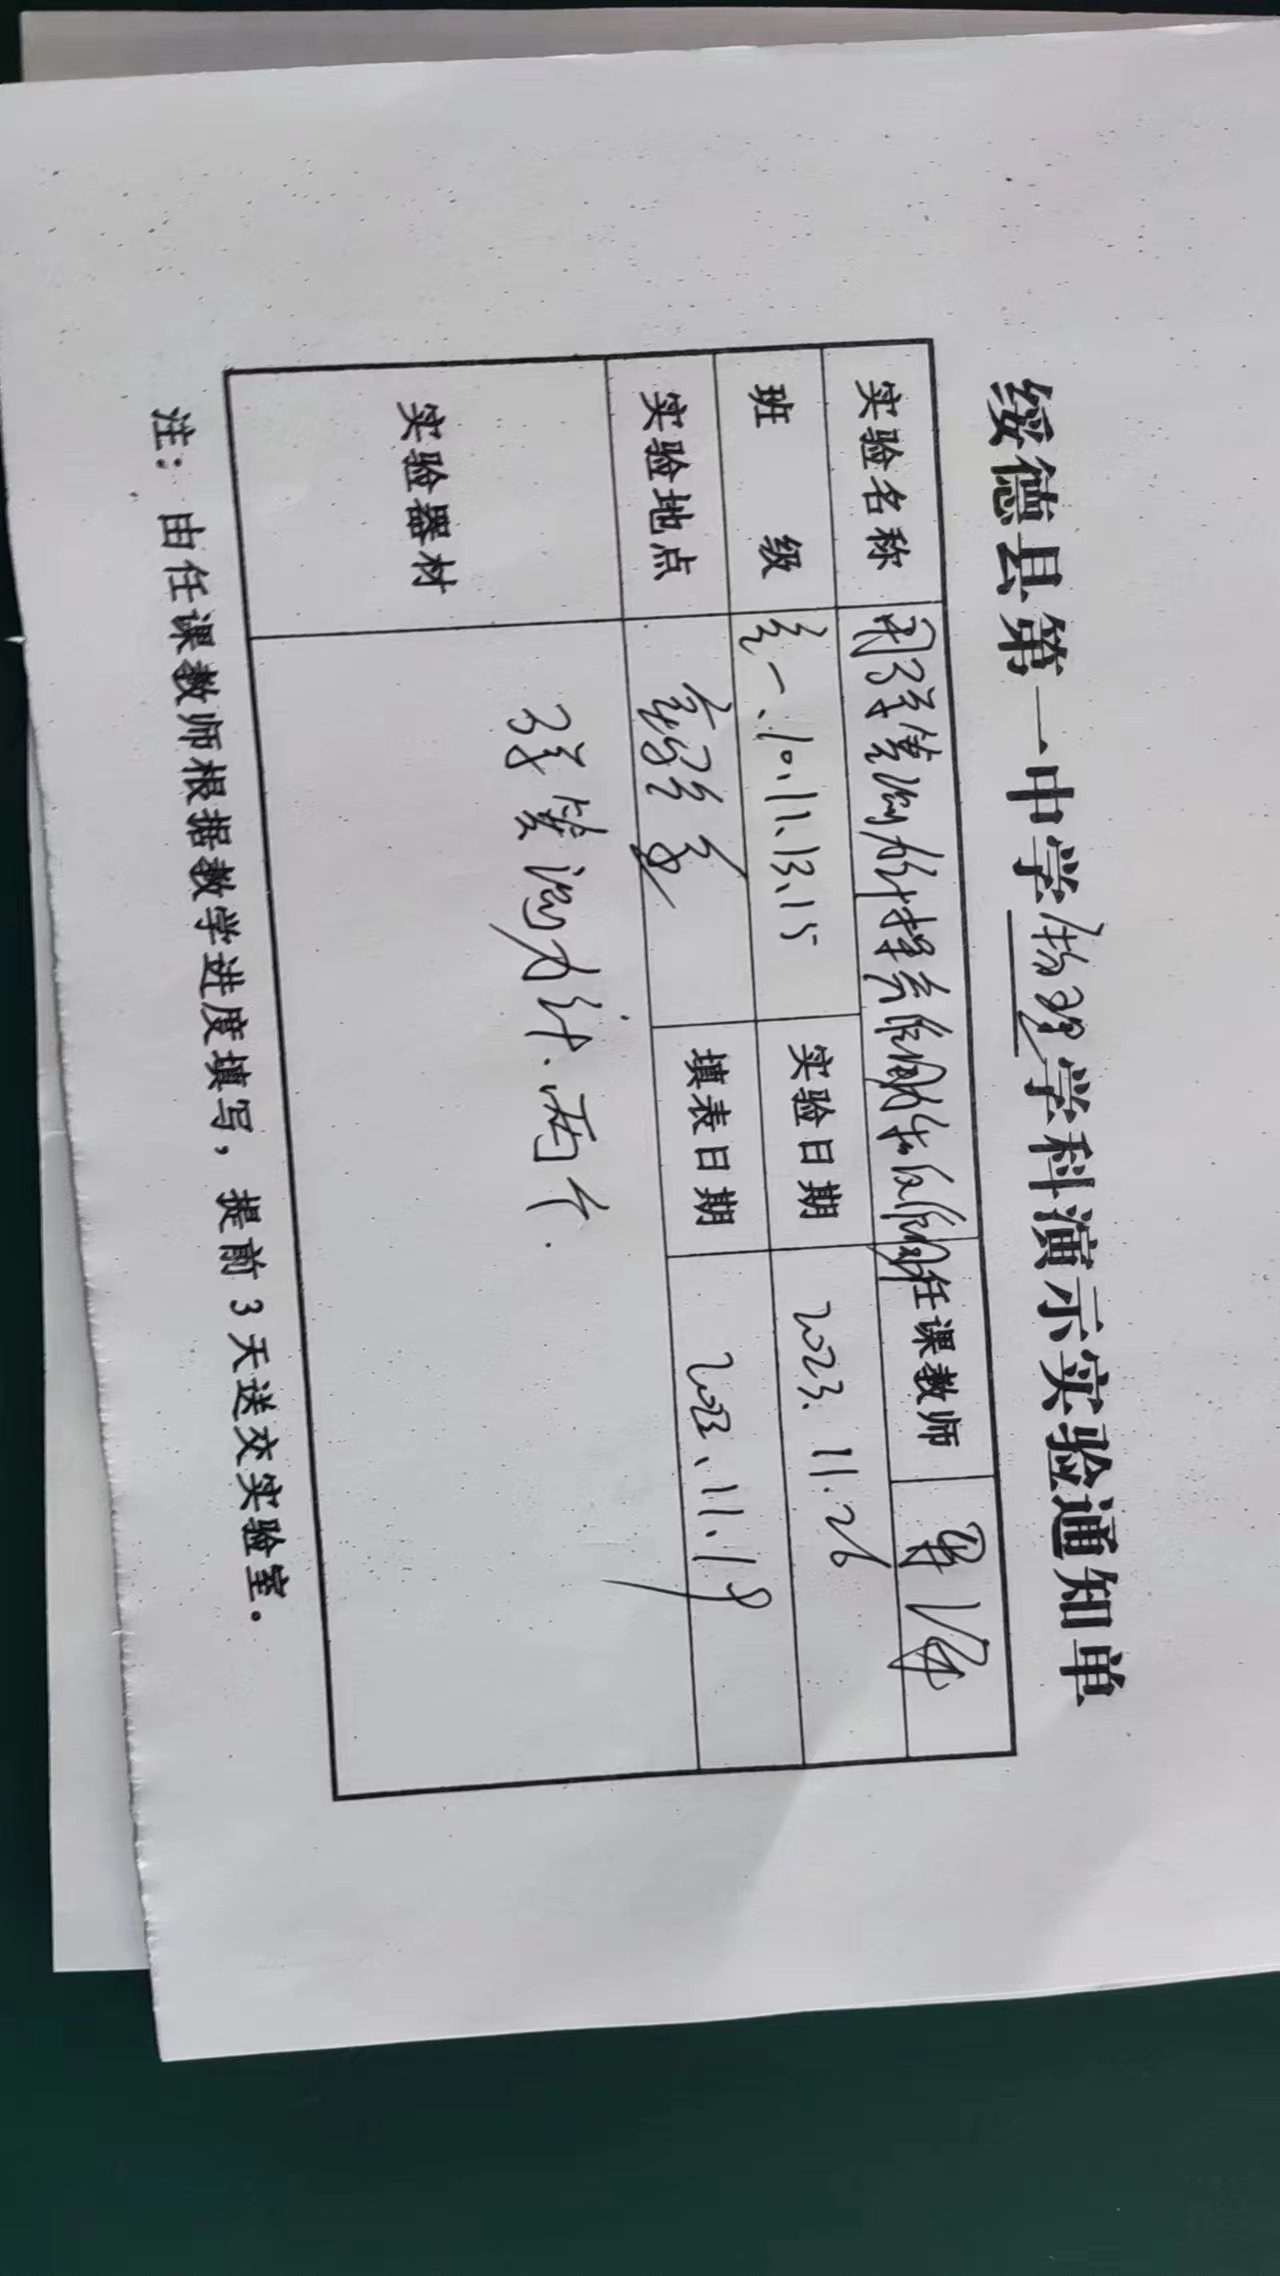 绥德县第一中学物理学科演示实验通知单
实验名称 用弹簧测力计探究作用力和反作用力 任课教师
班 级 高一、10、11、13、15 实验日期 2023. 11. 26
实验地点 教室 填表日期 2023、11、19
实验器材 弹簧测力计、两个.
注：由任课教师根据教学进度填写，提前3天送交实验室。